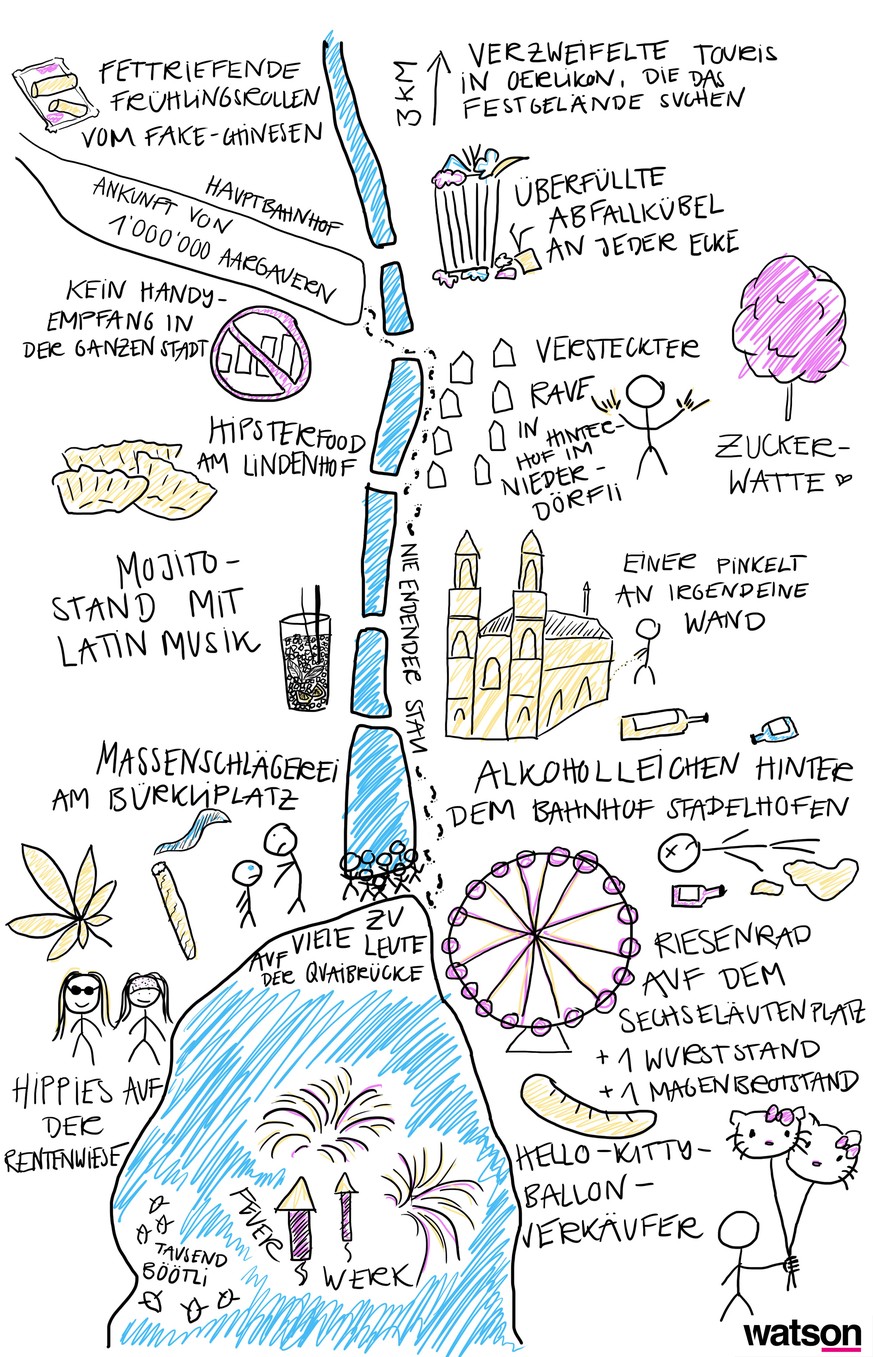 FETTRIEFENDE
FRÜHLINGSROLLEN
VOM FAKE-CHINESEN
3 KM
VERZWEIFELTE TOURIS
IN OERLIKON, DIE DAS
FESTGELÄNDE SUCHEN
HAUPTBAHNHOF
ANKUNFT VON
1'000'000 AARGAUERN
ÜBERFÜLLTE
ABFALLKÜBEL
AN JEDER ECKE
KEIN HANDY-
EMPFANG IN
DER GANZEN STADT
VERSTECKTER
RAVE
IN HINTER-
HOF IM
NIEDER-
DÖRFLI
ZUCKER-
WATTE
HIPSTERFOOD
AM LINDENHOF
NIE ENDENDER STAU
MOJITO-
STAND MIT
LATIN MUSIK
EINER PINKELT
AN IRGENDEINE
WAND
MASSENSCHLÄGEREI
AM BÜRKLIPLATZ
ALKOHOLLEICHEN HINTER
DEM BAHNHOF STADELHOFEN
ZU
VIELE LEUTE
AUF DER QUAIBRÜCKE
RIESENRAD
AUF DEM
SECHSELÄUTENPLATZ
+ 1 WURSTSTAND
+ 1 MAGENBROTSTAND
HIPPIES AUF
DER
RENTENWIESE
HELLO-KITTY-
BALLON-
VERKÄUFER
FEUER
WERK
TAUSEND
BÖÖTLI
watson